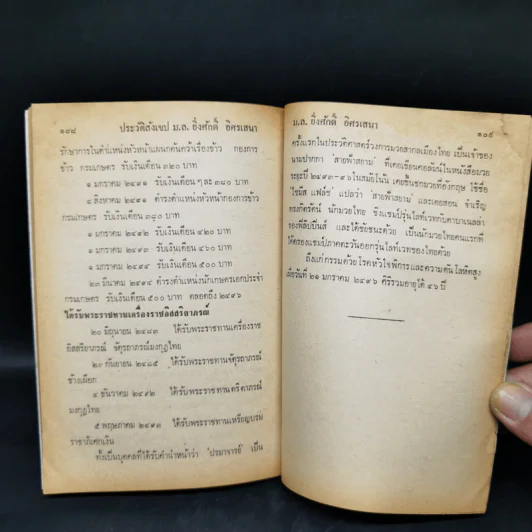 ๑๐๘ ประวัติสังเขป ม.ล. ยิ่งศักดิ์ อิศรเสนา
รักษาการในตำแหน่งหัวหน้าแผนกค้นคว้าเรื่องข้าว กองการ
ข้าว กรมเกษตร รับเงินเดือน ๓๒๐ บาท
๑ มกราคม ๒๔๙๑ รับเงินเดือน ๆ ละ ๓๘๐ บาท
๔ สิงหาคม ๒๔๙๑ ดำรงตำแหน่งหัวหน้ากองการข้าว
กรมเกษตร รับเงินเดือน ๓๘๐ บาท
๑ มกราคม ๒๔๙๒ รับเงินเดือน ๔๒๐ บาท
๑ มกราคม ๒๔๙๓ รับเงินเดือน ๔๖๐ บาท
๑ มกราคม ๒๔๙๔ รับเงินเดือน ๕๐๐ บาท
๒๓ มีนาคม ๒๔๙๔ ดำรงตำแหน่งนักเกษตรเอกประจำ
กรมเกษตร รับเงินเดือน ๕๐๐ บาท ตลอดถึง ๒๔๙๖
ได้รับพระราชทานเครื่องราชอิสสริยาภรณ์
๒๐ มิถุนายน ๒๔๘๓ ได้รับพระราชทานเครื่องราช
อิสสริยาภรณ์ จัตุรถาภรณ์มงกุฎไทย
๒๐ กันยายน ๒๔๘๕ ได้รับพระราชทานจัตุถาภรณ์
ช้างเผือก
๔ ธันวาคม ๒๔๙๒ ได้รับพระราชทานตริตาภรณ์
มงกุฎไทย
๕ พฤษภาคม ๒๔๙๓ ได้รับพระราชทานเหรียญบรม
ราชาภิเศกเงิน
ทั้งเป็นบุคคลที่ได้รับคำนำหน้าว่า 'ปรมาจารย์' เป็น
ม.ล. ยิ่งศักดิ์ อิศรเสนา ๑๐๙
ครั้งแรกในประวัติศาสตร์วงการมวยสากลเมืองไทย เป็นเจ้าของ
นามปากกา 'สายฟ้าสยาม' ที่เคยเขียนคอลัมน์ในหนังสือมวย
ระยะปี ๒๔๙๓-๙๖ ในสมัยโน้น เคยขึ้นชกมวยที่อังกฤษ ใช้ชื่อ
ไซมีส แฟล็ช แปลว่า 'สายฟ้าสยาม' และเคยสอน จำเริญ
ทรงกิตรัตน์ นักมวยไทย ชิงแชมป์รุ่นไลท์เวทกับคาบาเนลล่า
ของฟิลิปปินส์ และได้ชัยชนะด้วย เป็นนักมวยไทยคนแรกที่
ได้ครองแชมป์ภาคตะวันออกรุ่นไลท์เวทของไทยด้วย
ถึงแก่กรรมด้วยโรคหัวใจพิการและความดันโลหิตสูง
เมื่อวันที่ ๒๑ มกราคม ๒๔๙๖ ศิริรวมอายุได้ ๔๖ ปี